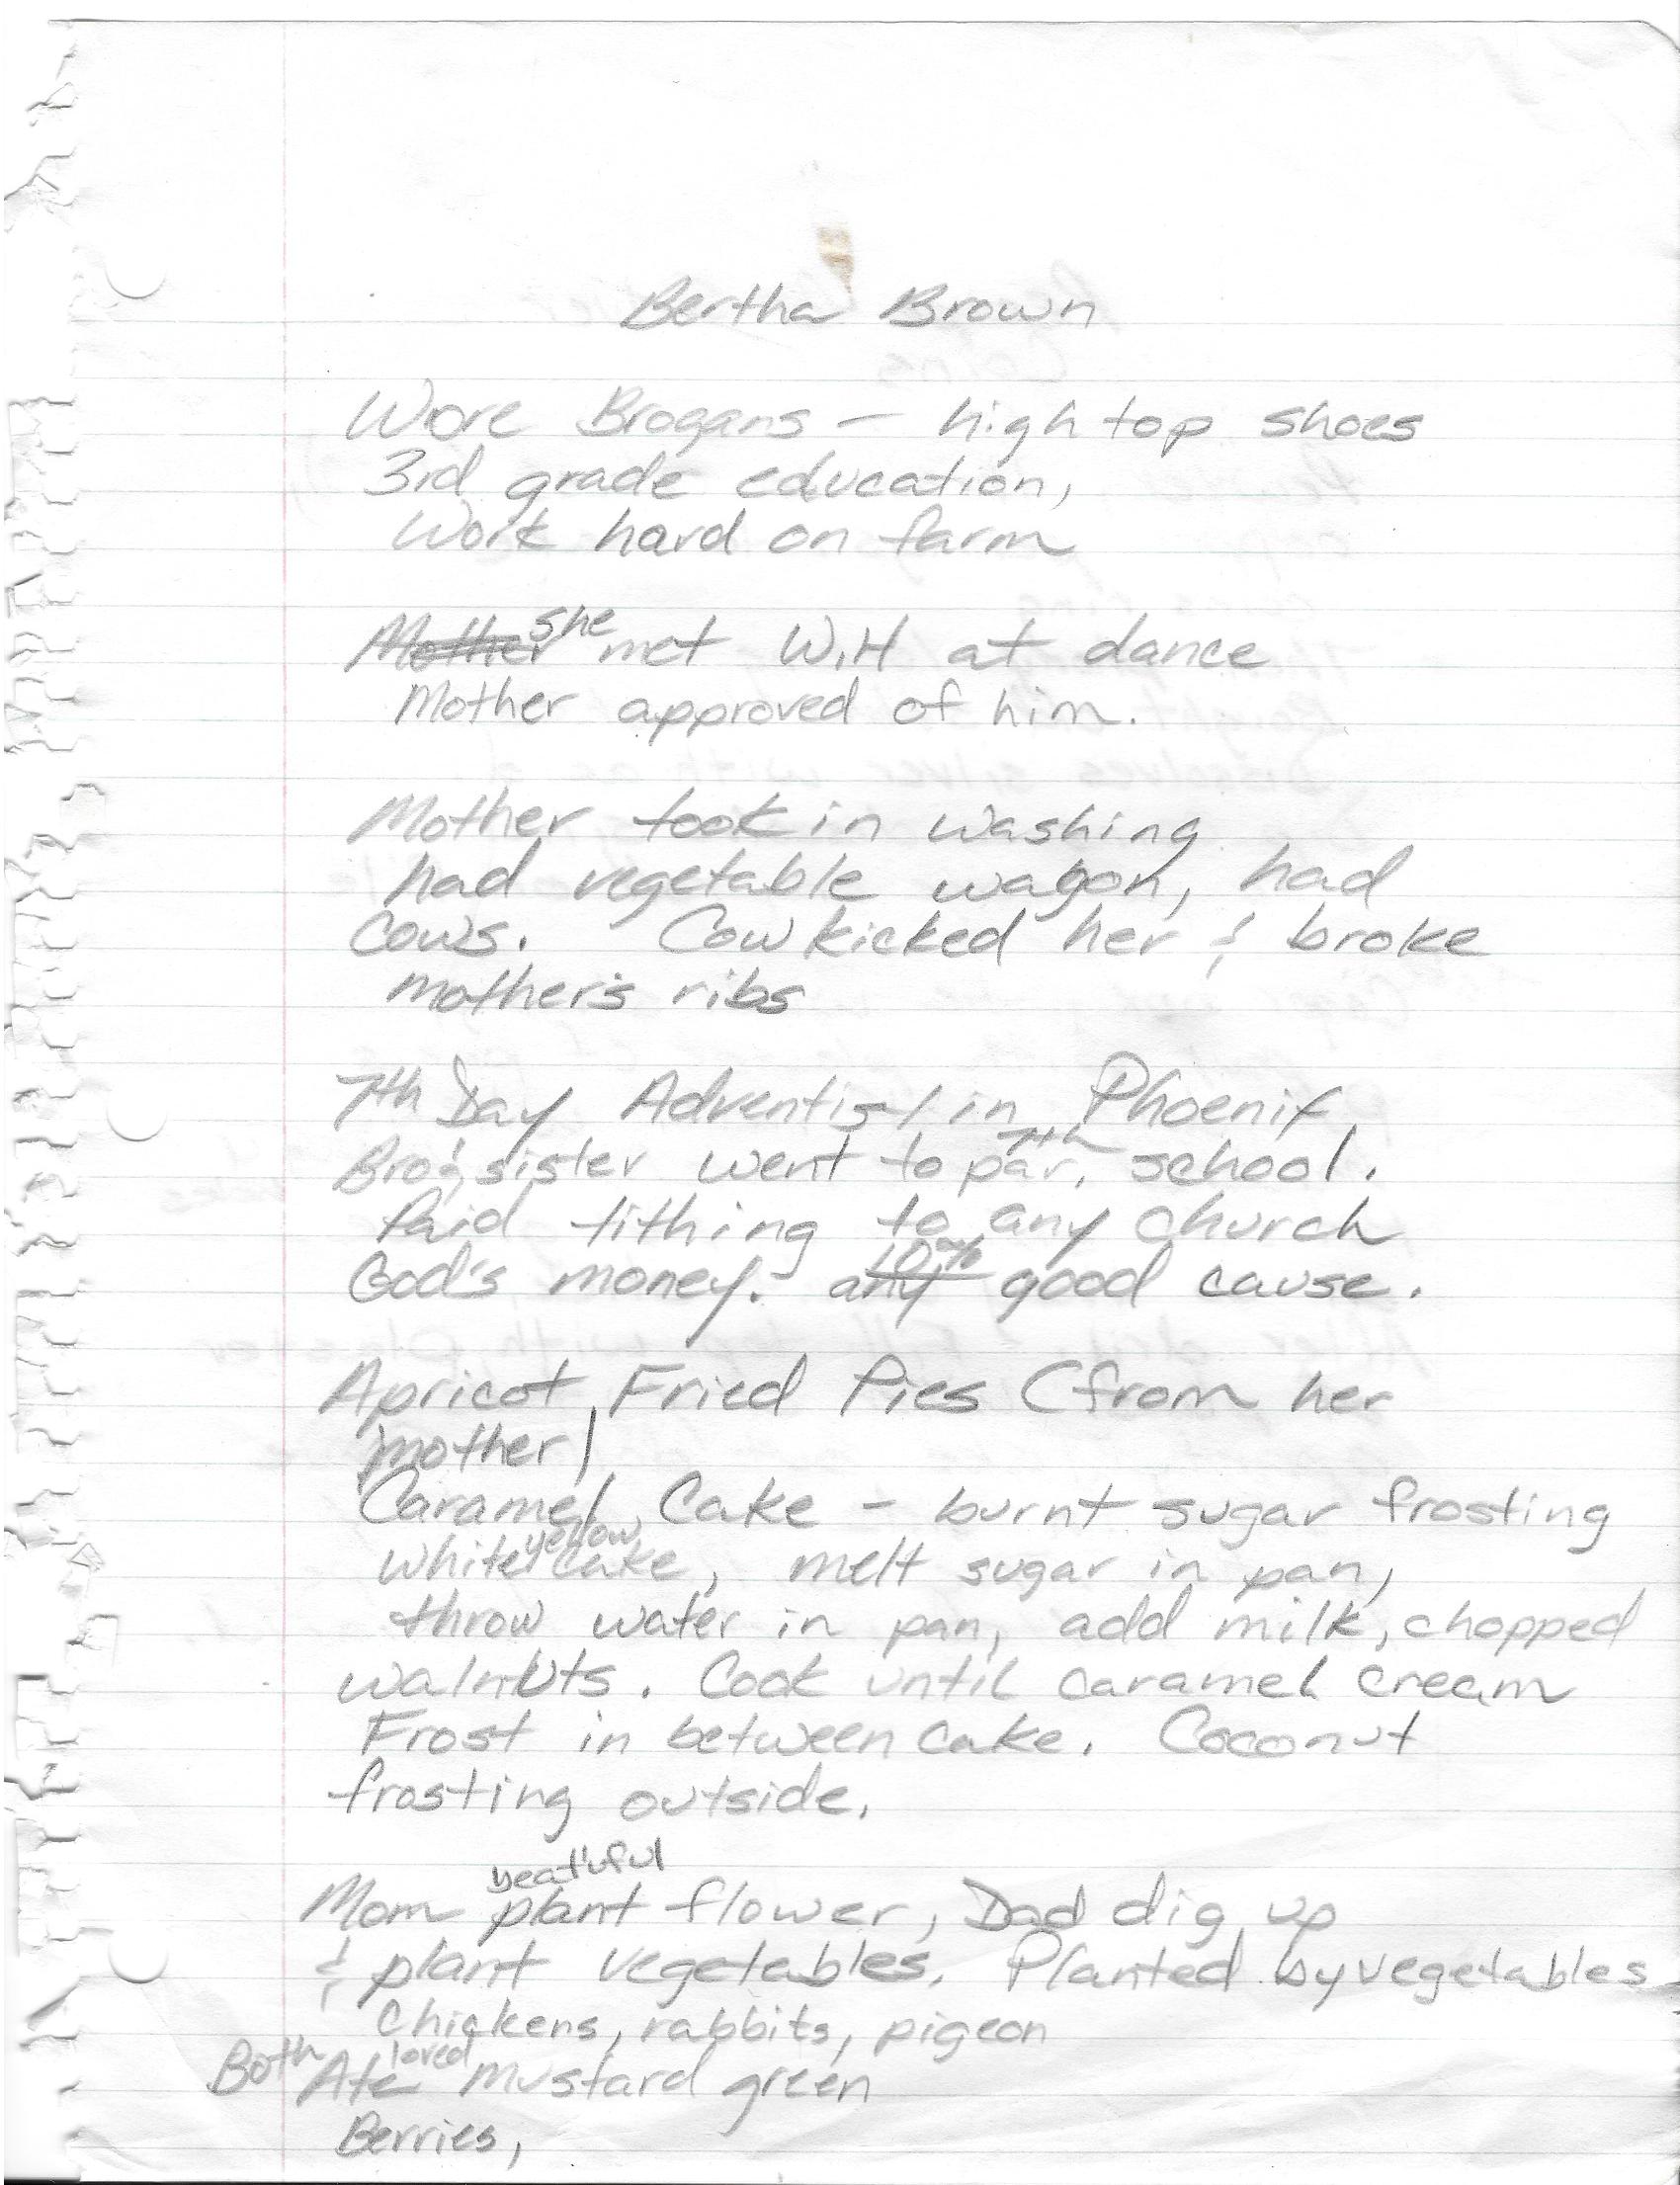 Bertha Brown
Wore Brogans - high top shoes
3rd grade education,
Work hard on farm
Mother she met W.H at dance
Mother approved of him.
Mother took in washing
had vegetable wagon, had
cows. Cow kicked her & broke
mother's ribs
7th Day Adventist in Phoenix,
Bro & sister went to par. 7th school.
Paid tithing to any church
God's money. any 10% good cause.
Apricot Fried Pies (from her
mother)
Caramel Cake - burnt sugar frosting
white yellow cake, melt sugar in pan,
throw water in pan, add milk, chopped
walnuts. Cook until caramel cream
Frost in between cake. Coconut
frosting outside.
Mom plant beatuful flower, Dad dig up
& plant vegetables. Planted by vegetables
Chickens, rabbits, pigeon
Both Ate loved mustard green
Berries,